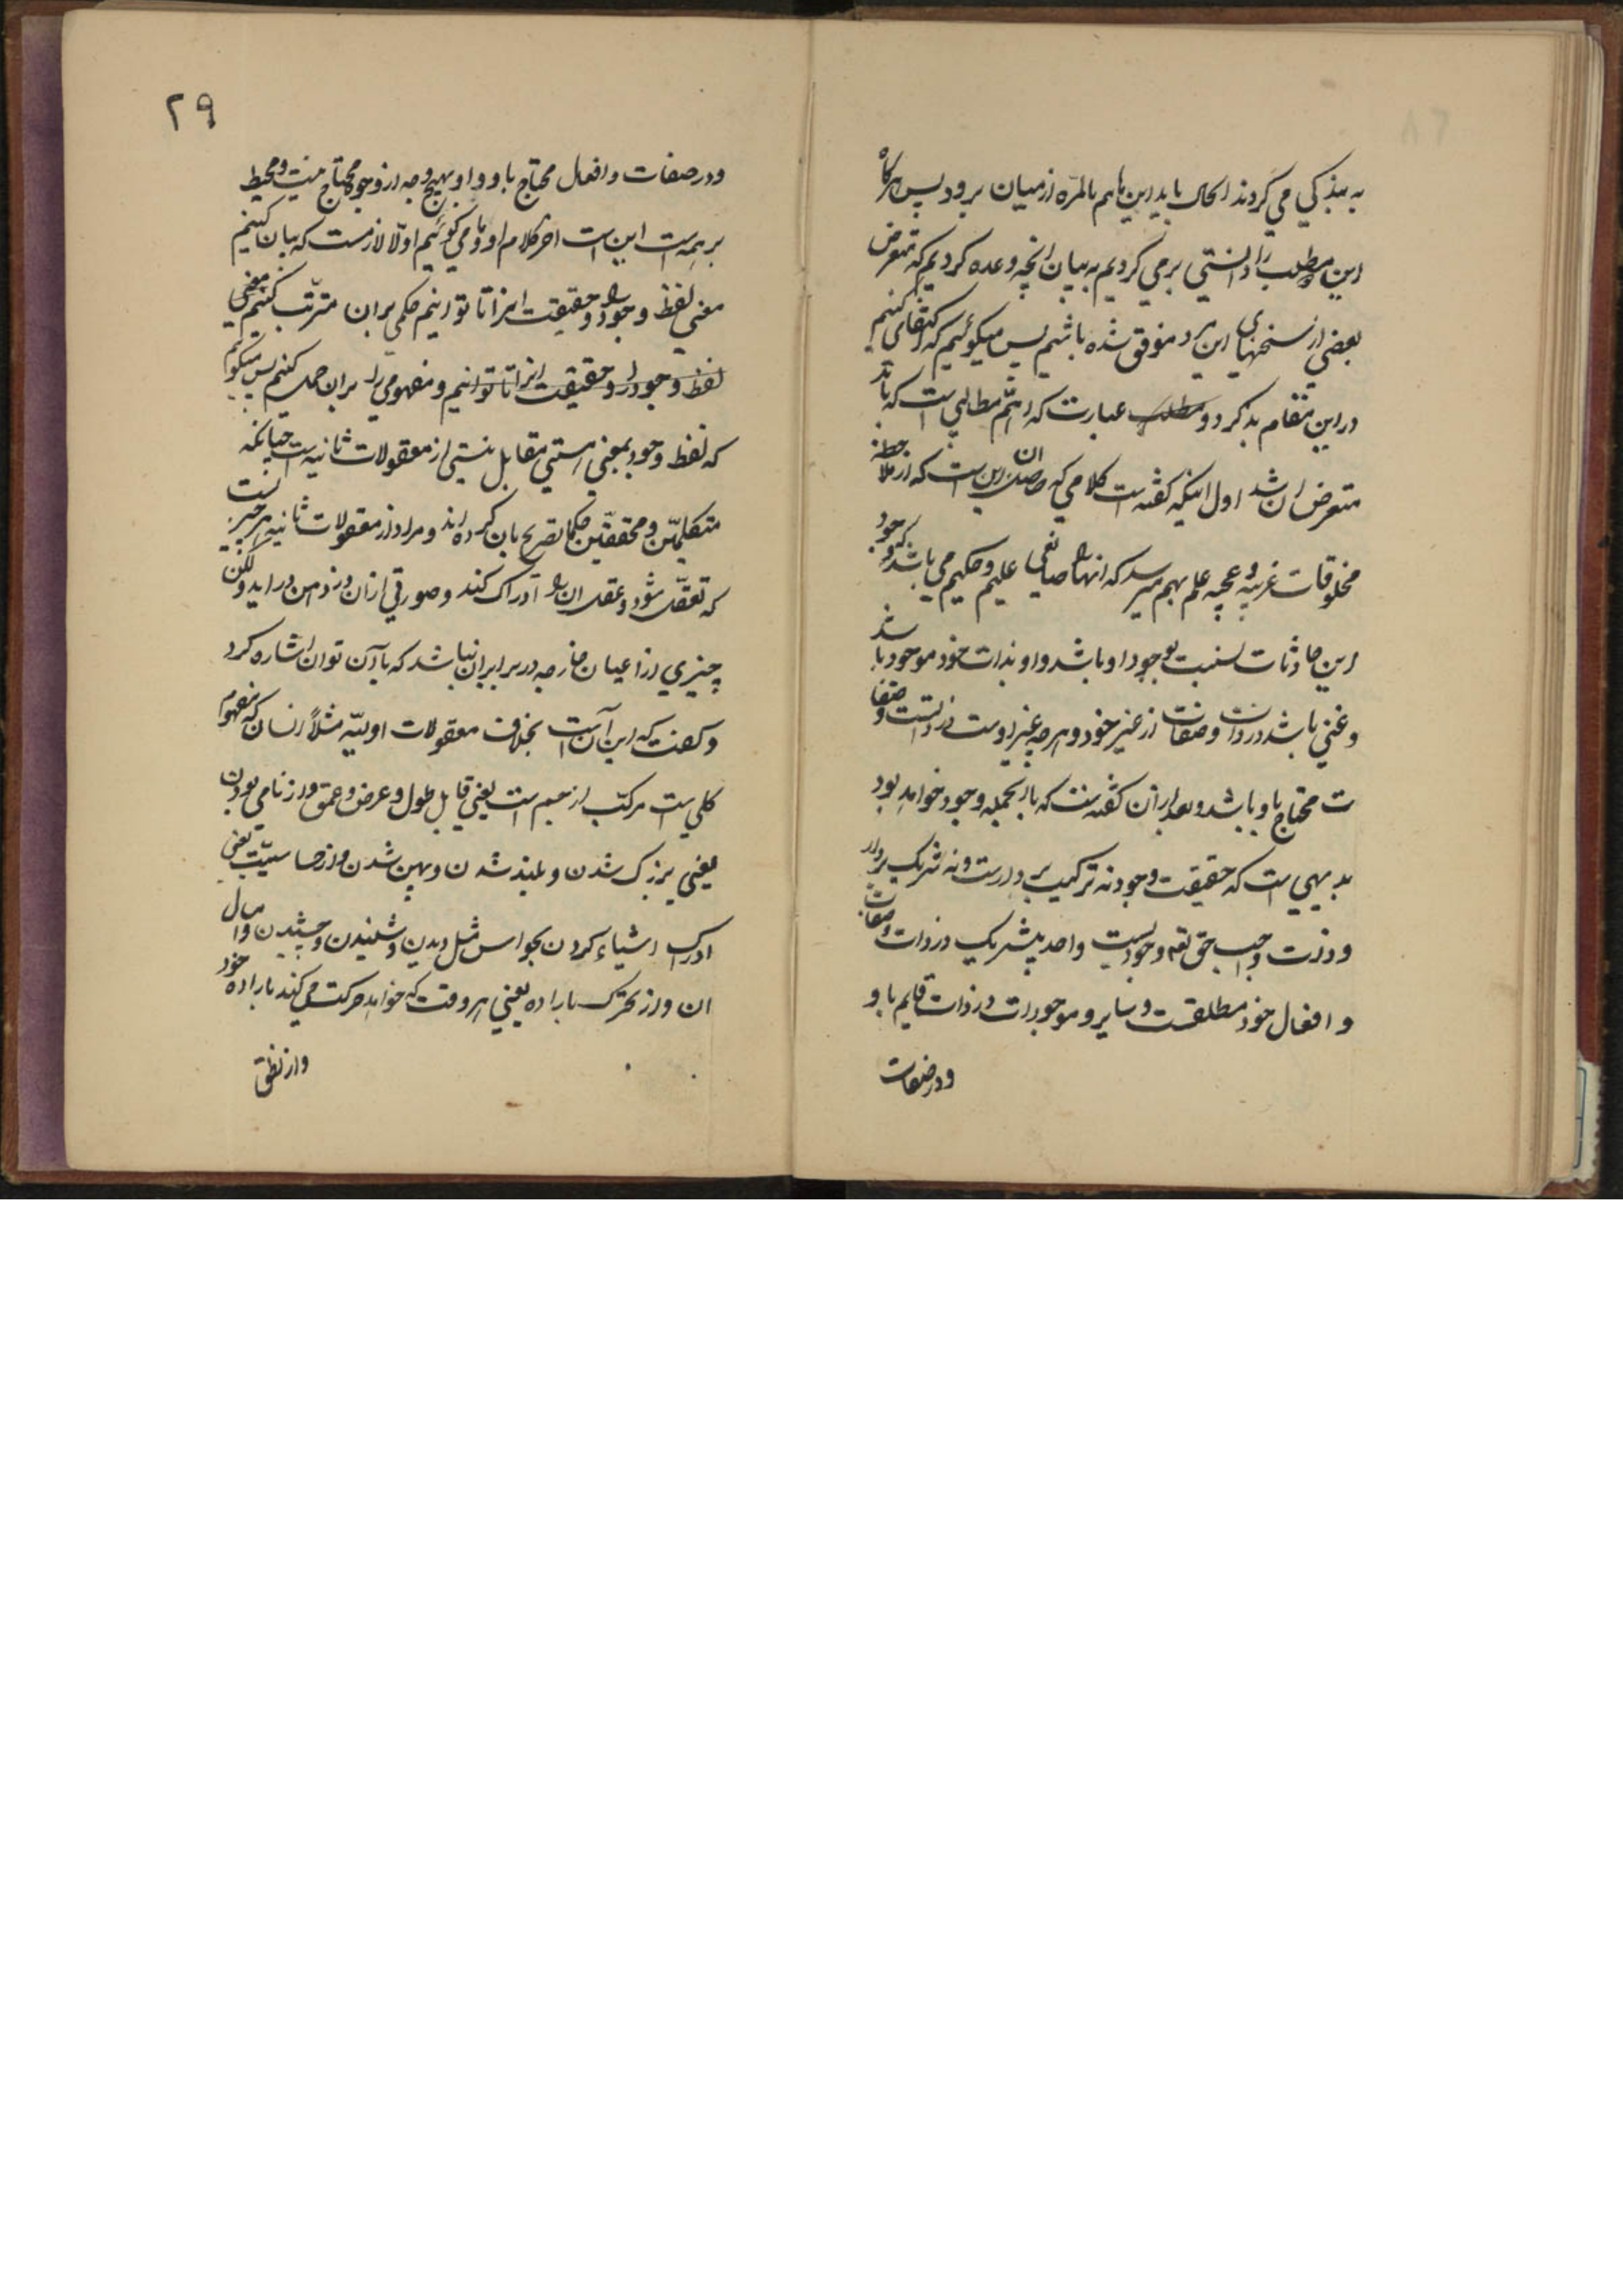 به بندگی می‌کردند الحال باید این هم بالمرّه از میان برود پس هرگاه
این مطلب را دانستی برمی‌گردیم به بیان آنچه وعده کردیم که متعرض
بعضی از سخنهای این مرد موفق شده باشیم پس میگوئیم که اکتفا می‌کنیم
در این مقام بذکر دو مطلب عبارت که اهمّ مطالبی است که باید
متعرض ان شد اول اینکه گفته است کلامی که حاصل ان این است که از ملاحظه
مخلوقات غریبه و عجیبه علم بهم میرسد که انها را صانعی علیم و حکیم می‌باشد که وجود
این حادثات نسبت بوجود او باشد و او بذات خود موجود باشد
و غنی باشد در ذات و صفات از غیر خود و هر چه غیر اوست در ذات و صفا
ت محتاج باو باشد و بعد از آن گفته است که بالجمله وجود خواهد بود
بدیهی است که حقیقت وجود نه ترکیب بردار است و نه شریک بردار
و ذات واجب حق تعه وجودیست واحد بیشریک در ذات و صفات
و افعال خود مطلقست و سایر موجودات در ذات قایم باو
ودر صفات
۲۹
ودر صفات و افعال محتاج باو و او بهیچ وجه از وجوه محتاج نیست و محیط
بر همه است این است اخر کلام او و ما می‌گوئیم اولا لازمست که بیان کنیم
معنی لفظ وجود را و حقیقت انرا تا توانیم حکمی بران مترتب کنیم یعنی
لفظ وجود را و حقیقت انرا تا توانیم و مفهومی را بران حمل کنیم پس میگوئیم
که لفظ وجود بمعنی هستی مقابل نیستی از معقولات ثانیه است چنانکه
متکلمین و محققین حکما تصریح بان کرده‌اند و مراد از معقولات ثانیه هر چیزیست
که تعقل شود و عقل ان را ادراک کند و صورتی از ان در ذهن در اید ولکن
چیزی از اعیان خارجه در برابر ان نباشد که بآن توان اشاره کرد
و گفت که این آنست بخلاف معقولات اولیّه مثلاً انسان که مفهوم
کلی است مرکب از جسم است یعنی قابل طول و عرض و عمق و از نامی بودن
یعنی بزرگ شدن و بلند شدن و پهن شدن و از حساسیّت یعنی
ادراک اشیاء کردن بحواس مثل دیدن و شنیدن و چشیدن و امثال
ان و از تحرک باراده یعنی هر وقت که خواهد حرکت می‌کند باراده خود
و از نطق